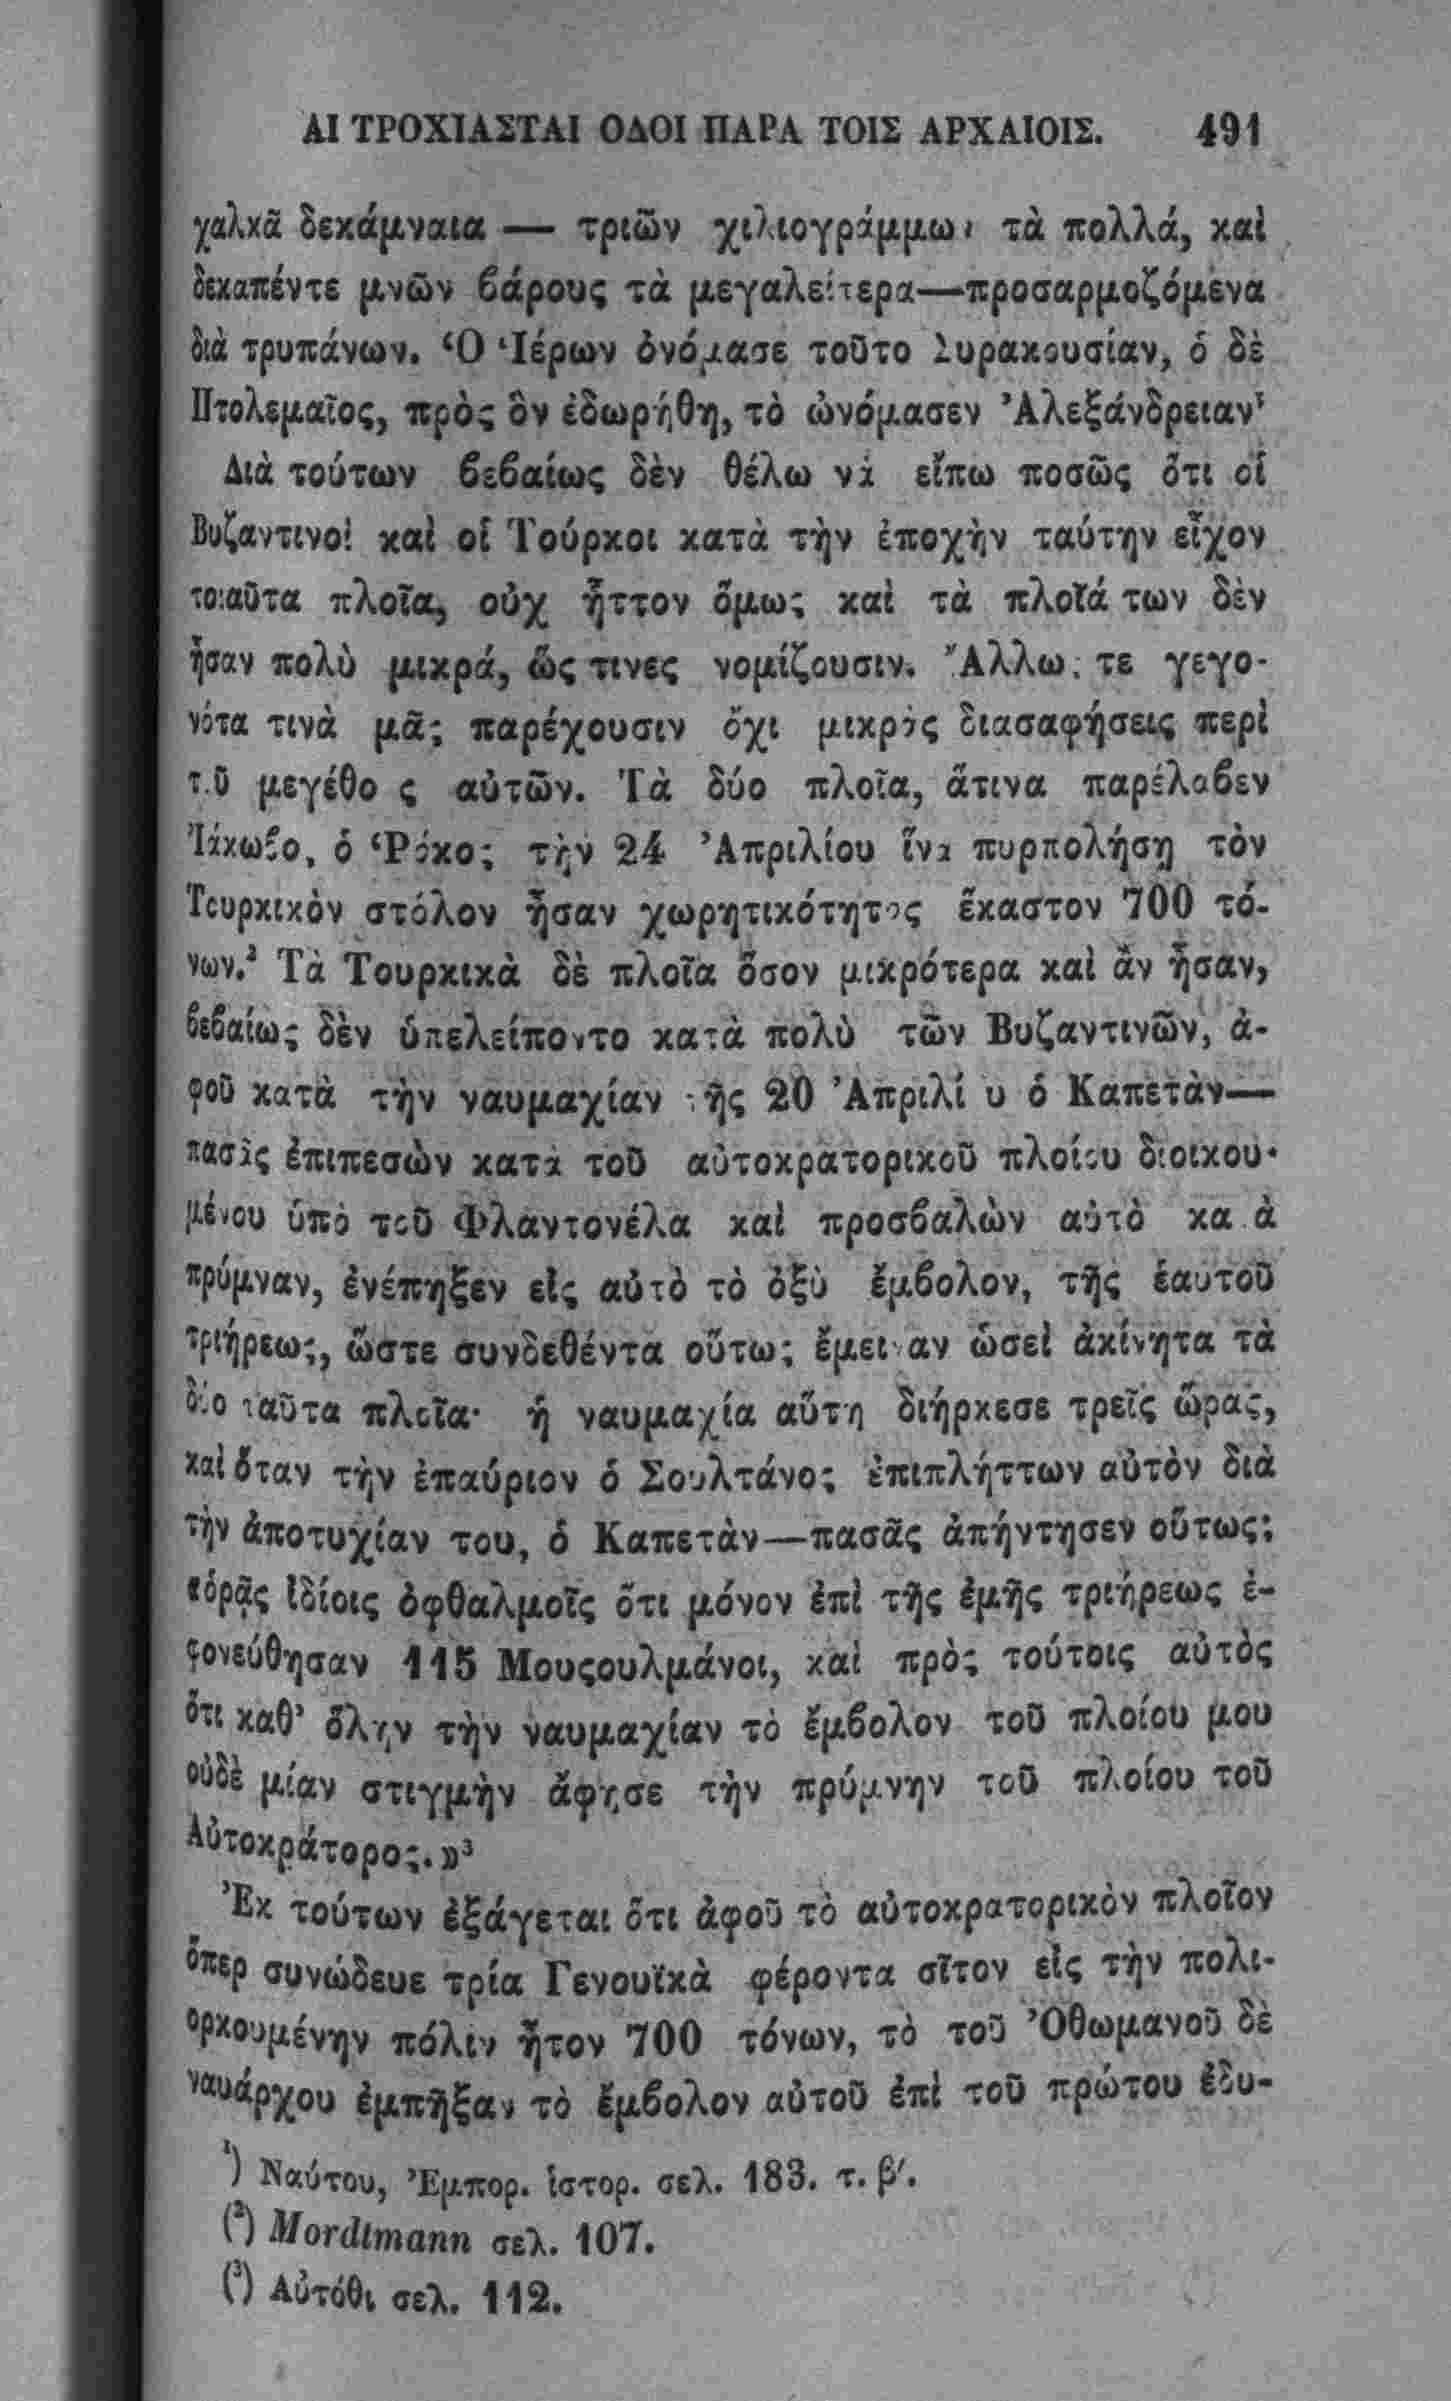 ΑΙ ΤΡΟΧΙΑΣΤΑΙ ΟΔΟΙ ΠΑΡΑ ΤΟΙΣ ΑΡΧΑΙΟΙΣ. 491
χαλκᾶ δεκάμναια — τριῶν χιλιογράμμων τὰ πολλά, καὶ
δεκαπέντε μνῶν βάρους τὰ μεγαλείτερα—προσαρμοζόμενα
διὰ τρυπάνων. Ὁ Ἱέρων ὀνόμασε τοῦτο Συρακουσίαν, ὁ δὲ
Πτολεμαῖος, πρὸς ὃν ἐδωρήθη, τὸ ὠνόμασεν Ἀλεξάνδρειαν¹
Διὰ τούτων βεβαίως δὲν θέλω νὰ εἴπω ποσῶς ὅτι οἱ
Βυζαντινοὶ καὶ οἱ Τούρκοι κατὰ τὴν ἐποχὴν ταύτην εἶχον
τοιαῦτα πλοῖα, οὐχ ἧττον ὅμως καὶ τὰ πλοῖά των δὲν
ἦσαν πολὺ μικρά, ὥς τινες νομίζουσιν. Ἄλλως τε γεγο-
νότα τινὰ μᾶς παρέχουσιν ὄχι μικρὰς διασαφήσεις περὶ
τοῦ μεγέθους αὐτῶν. Τὰ δύο πλοῖα, ἅτινα παρέλαβεν
Ἰάκωβος ὁ Ῥόκος τὴν 24 Ἀπριλίου ἵνα πυρπολήσῃ τὸν
Τουρκικὸν στόλον ἦσαν χωρητικότητος ἕκαστον 700 τό-
νων.² Τὰ Τουρκικὰ δὲ πλοῖα ὅσον μικρότερα καὶ ἂν ἦσαν,
βεβαίως δὲν ὑπελείποντο κατὰ πολὺ τῶν Βυζαντινῶν, ἀ-
φοῦ κατὰ τὴν ναυμαχίαν τῆς 20 Ἀπριλίου ὁ Καπετὰν—
πασᾶς ἐπιπεσὼν κατὰ τοῦ αὐτοκρατορικοῦ πλοίου διοικου-
μένου ὑπὸ τοῦ Φλαντονέλα καὶ προσβαλὼν αὐτὸ κατὰ
πρύμναν, ἐνέπηξεν εἰς αὐτὸ τὸ ὀξὺ ἔμβολον, τῆς ἑαυτοῦ
τριήρεως, ὥστε συνδεθέντα οὕτως ἔμειναν ὡσεὶ ἀκίνητα τὰ
δύο ταῦτα πλοῖα· ἡ ναυμαχία αὕτη διήρκεσε τρεῖς ὥρας,
καὶ ὅταν τὴν ἐπαύριον ὁ Σουλτάνος ἐπιπλήττων αὐτὸν διὰ
τὴν ἀποτυχίαν του, ὁ Καπετὰν—πασᾶς ἀπήντησεν οὕτως:
«ὁρᾷς ἰδίοις ὀφθαλμοῖς ὅτι μόνον ἐπὶ τῆς ἐμῆς τριήρεως ἐ-
φονεύθησαν 115 Μουςουλμάνοι, καὶ πρὸς τούτοις αὐτὸς
ὅτι καθ' ὅλην τὴν ναυμαχίαν τὸ ἔμβολον τοῦ πλοίου μου
οὐδὲ μίαν στιγμὴν ἄφησε τὴν πρύμνην τοῦ πλοίου τοῦ
Αὐτοκράτορος.»³
Ἐκ τούτων ἐξάγεται ὅτι ἀφοῦ τὸ αὐτοκρατορικὸν πλοῖον
ὅπερ συνώδευε τρία Γενουϊκὰ φέροντα σῖτον εἰς τὴν πολι-
ορκουμένην πόλιν ἦτον 700 τόνων, τὸ τοῦ Ὀθωμανοῦ δὲ
ναυάρχου ἐμπῆξαν τὸ ἔμβολον αὐτοῦ ἐπὶ τοῦ πρώτου ἐδυ-
¹) Ναύτου, Ἐμπορ. ἱστορ. σελ. 183. τ. β′.
(²) Mordtmann σελ. 107.
(³) Αὐτόθι σελ. 112.